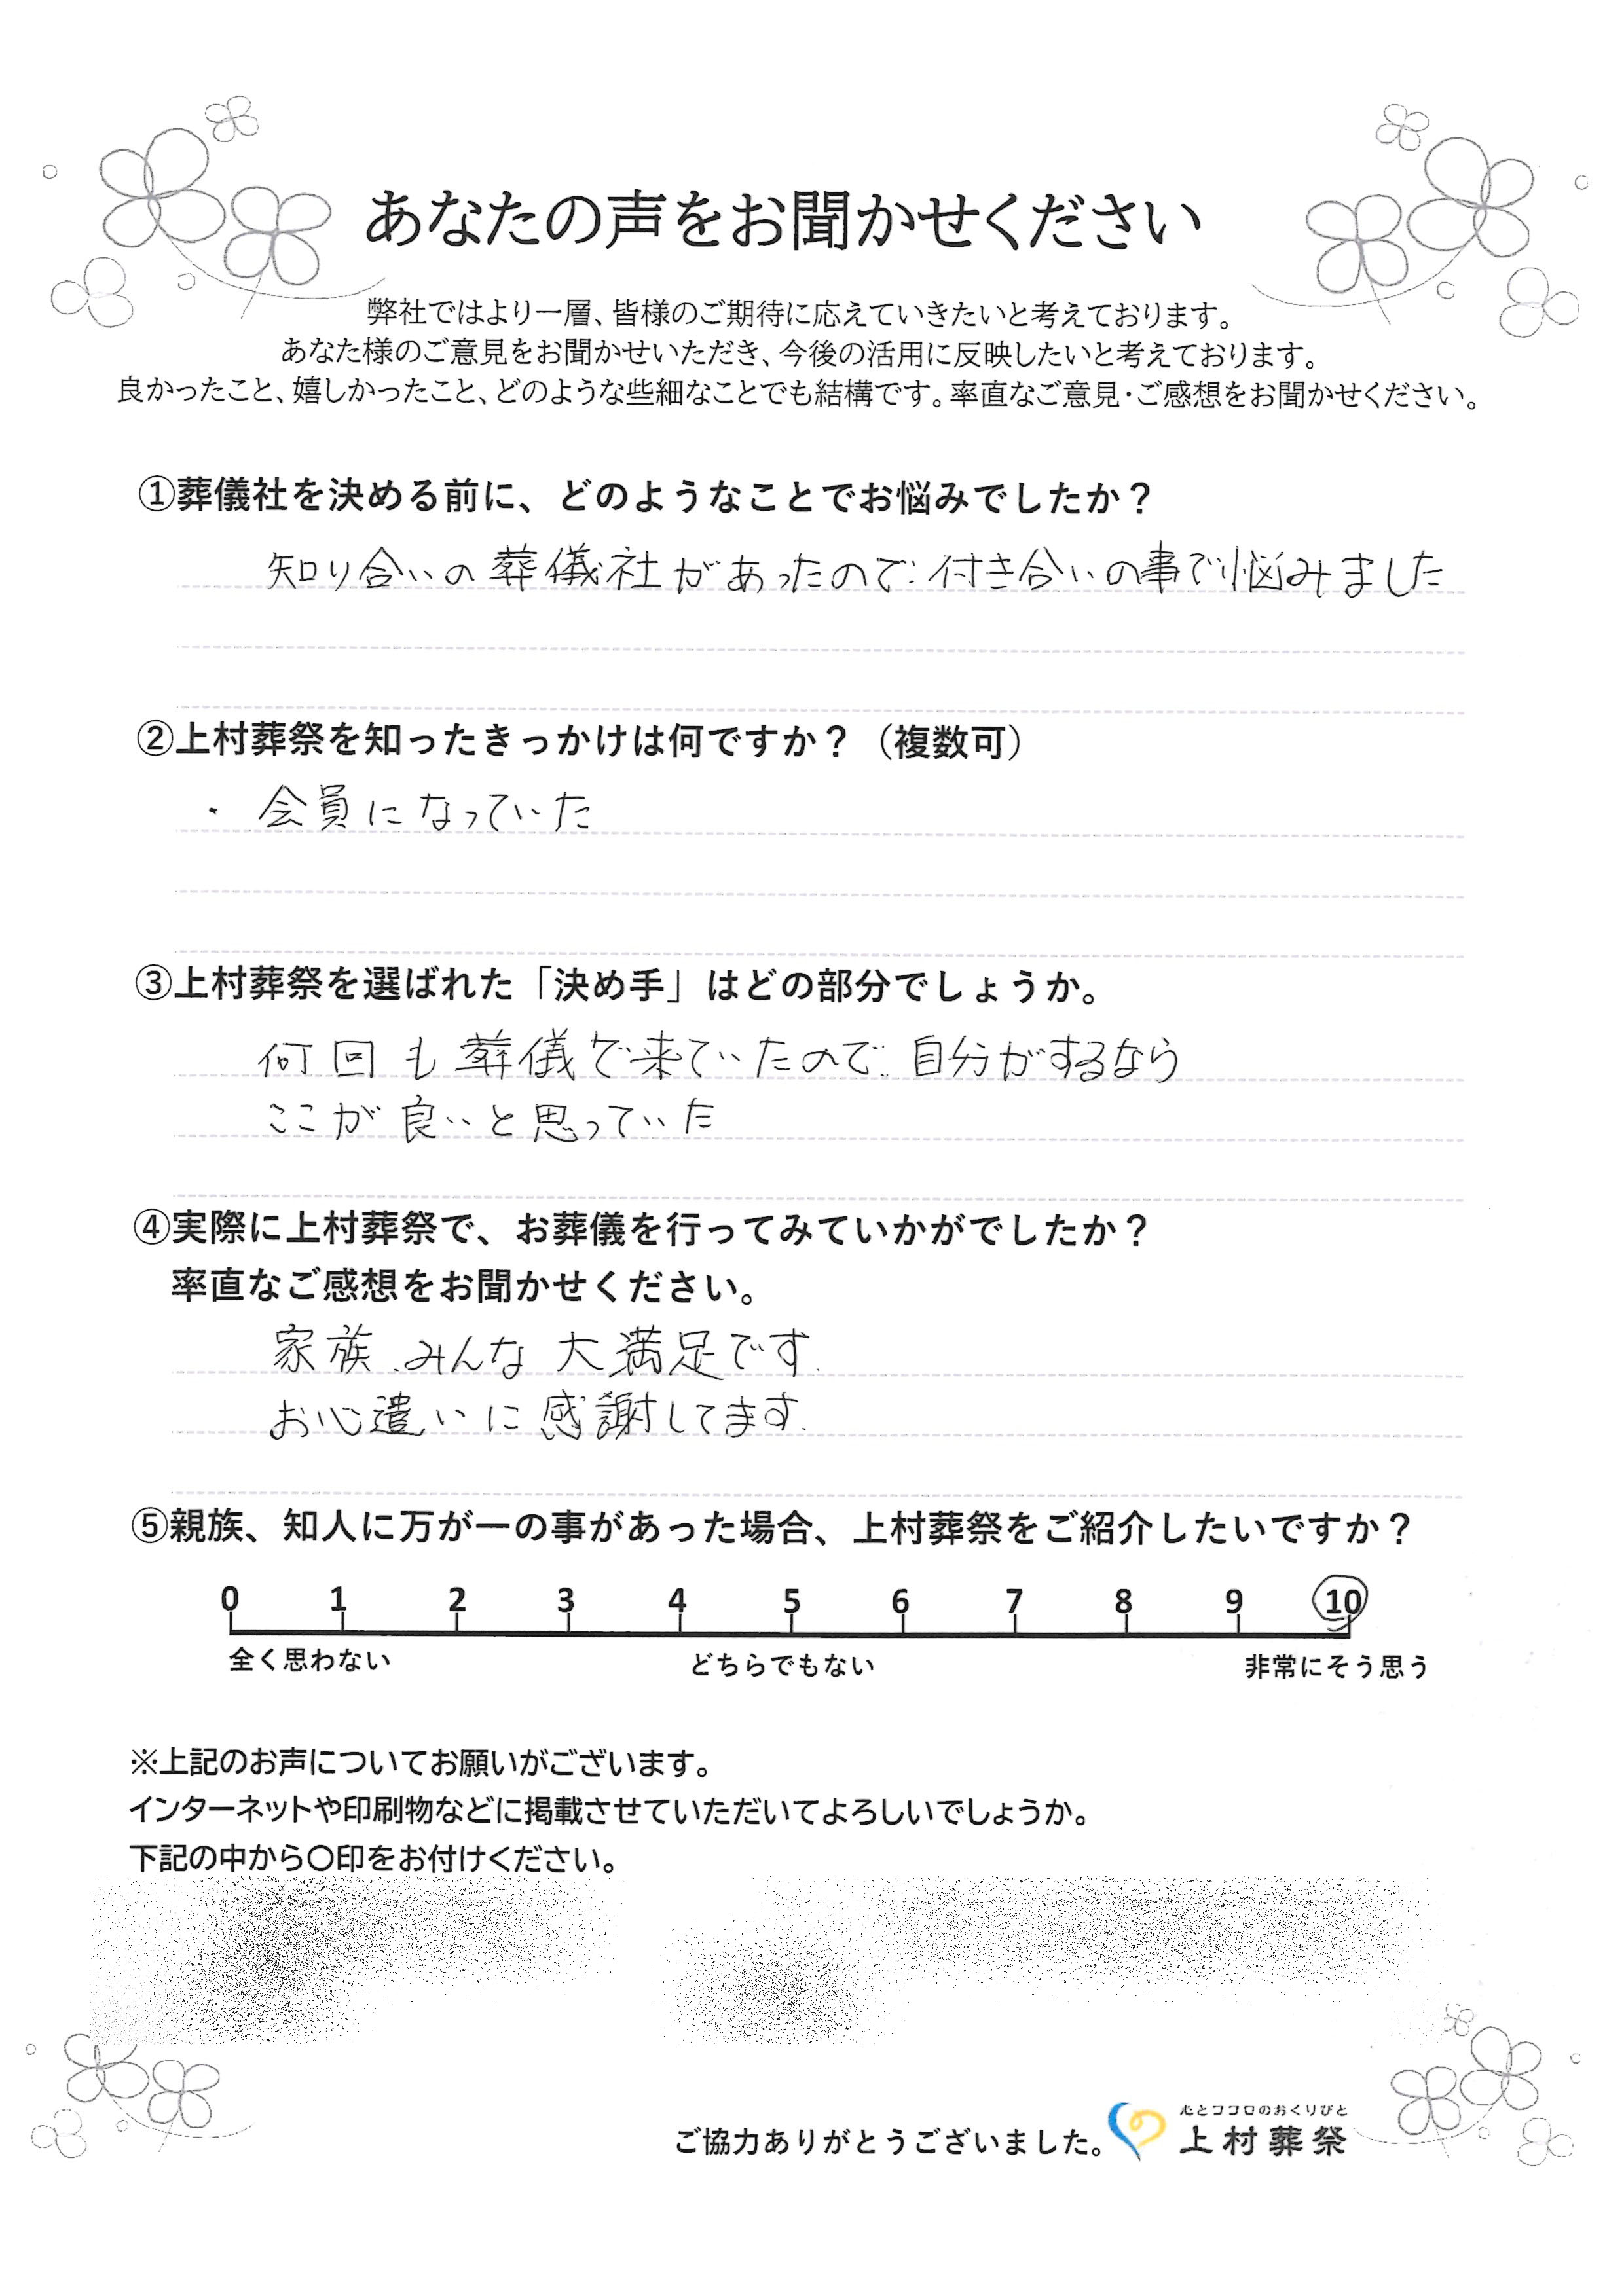 あなたの声をお聞かせください
弊社ではより一層、皆様のご期待に応えていきたいと考えております。
あなた様のご意見をお聞かせいただき、今後の活用に反映したいと考えております。
良かったこと、嬉しかったこと、どのような些細なことでも結構です。率直なご意見・ご感想をお聞かせください。
①葬儀社を決める前に、どのようなことでお悩みでしたか？
知り合いの葬儀社があったので、付き合いの事で悩みました
②上村葬祭を知ったきっかけは何ですか？（複数可）
・会員になっていた
③上村葬祭を選ばれた「決め手」はどの部分でしょうか。
何回も葬儀で来ていたので、自分がするなら
ここが良いと思っていた
④実際に上村葬祭で、お葬儀を行ってみていかがでしたか？
率直なご感想をお聞かせください。
家族、みんな大満足です。
お心遣いに感謝してます。
⑤親族、知人に万が一の事があった場合、上村葬祭をご紹介したいですか？
0 1 2 3 4 5 6 7 8 9 10
全く思わない どちらでもない 非常にそう思う
※上記のお声についてお願いがございます。
インターネットや印刷物などに掲載させていただいてよろしいでしょうか。
下記の中から〇印をお付けください。
心とココロのおくりびと
ご協力ありがとうございました。 上村葬祭